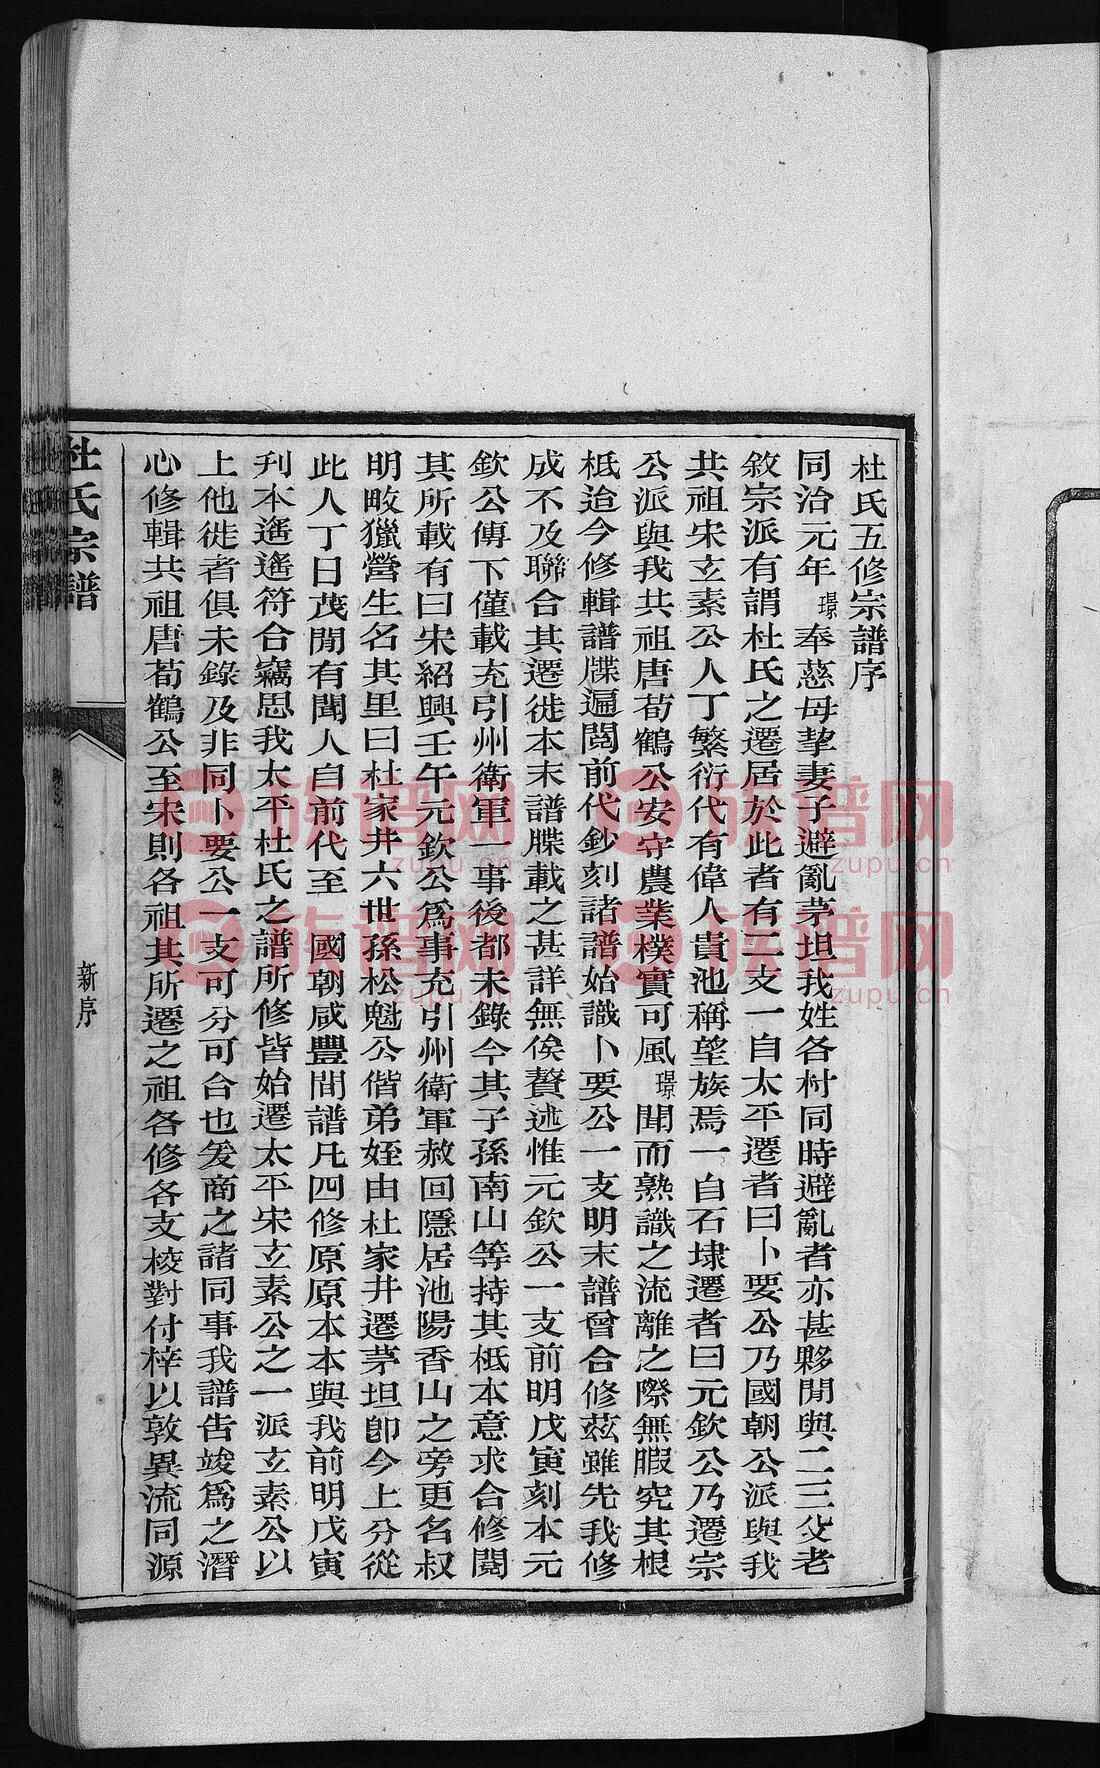 杜氏五修宗譜序
同治元年璟奉慈母挈妻子避亂茅坦我姓各村同時避亂者亦甚夥閒與二三父老
敘宗派有謂杜氏之遷居於此者有三支一自太平遷者曰卜要公乃國朝公派與我
共祖宋玄素公人丁繁衍代有偉人貴池稱望族焉一自石埭遷者曰元欽公乃遷宗
公派與我共祖唐荀鶴公安守農業樸實可風璟聞而熟識之流離之際無暇究其根
柢迨今修輯譜牒遍閱前代鈔刻諸譜始識卜要公一支明末譜曾合修茲雖先我修
成不及聯合其遷徙本末譜牒載之甚詳無俟贅述惟元欽公一支前明戊寅刻本元
欽公傳下僅載充引州衛軍一事後都未錄今其子孫南山等持其柢本意求合修閱
其所載有曰宋紹興壬午元欽公爲事充引州衛軍赦回隱居池陽香山之旁更名叔
明畋獵營生名其里曰杜家井六世孫松魁公偕弟姪由杜家井遷茅坦卽今上分從
此人丁日茂閒有聞人自前代至 國朝咸豐間譜凡四修原原本本與我前明戊寅
刋本遙遙符合竊思我太平杜氏之譜所修皆始遷太平宋玄素公之一派玄素公以
上他徙者俱未錄及非同卜要公一支可分可合也爰商之諸同事我譜告竣爲之潛
心修輯共祖唐荀鶴公至宋則各祖其所遷之祖各修各支校對付梓以敦異流同源
杜氏宗譜
新序
族谱网
zupu.cn
族谱网
zupu.cn
族谱网
zupu.cn
族谱网
zupu.cn